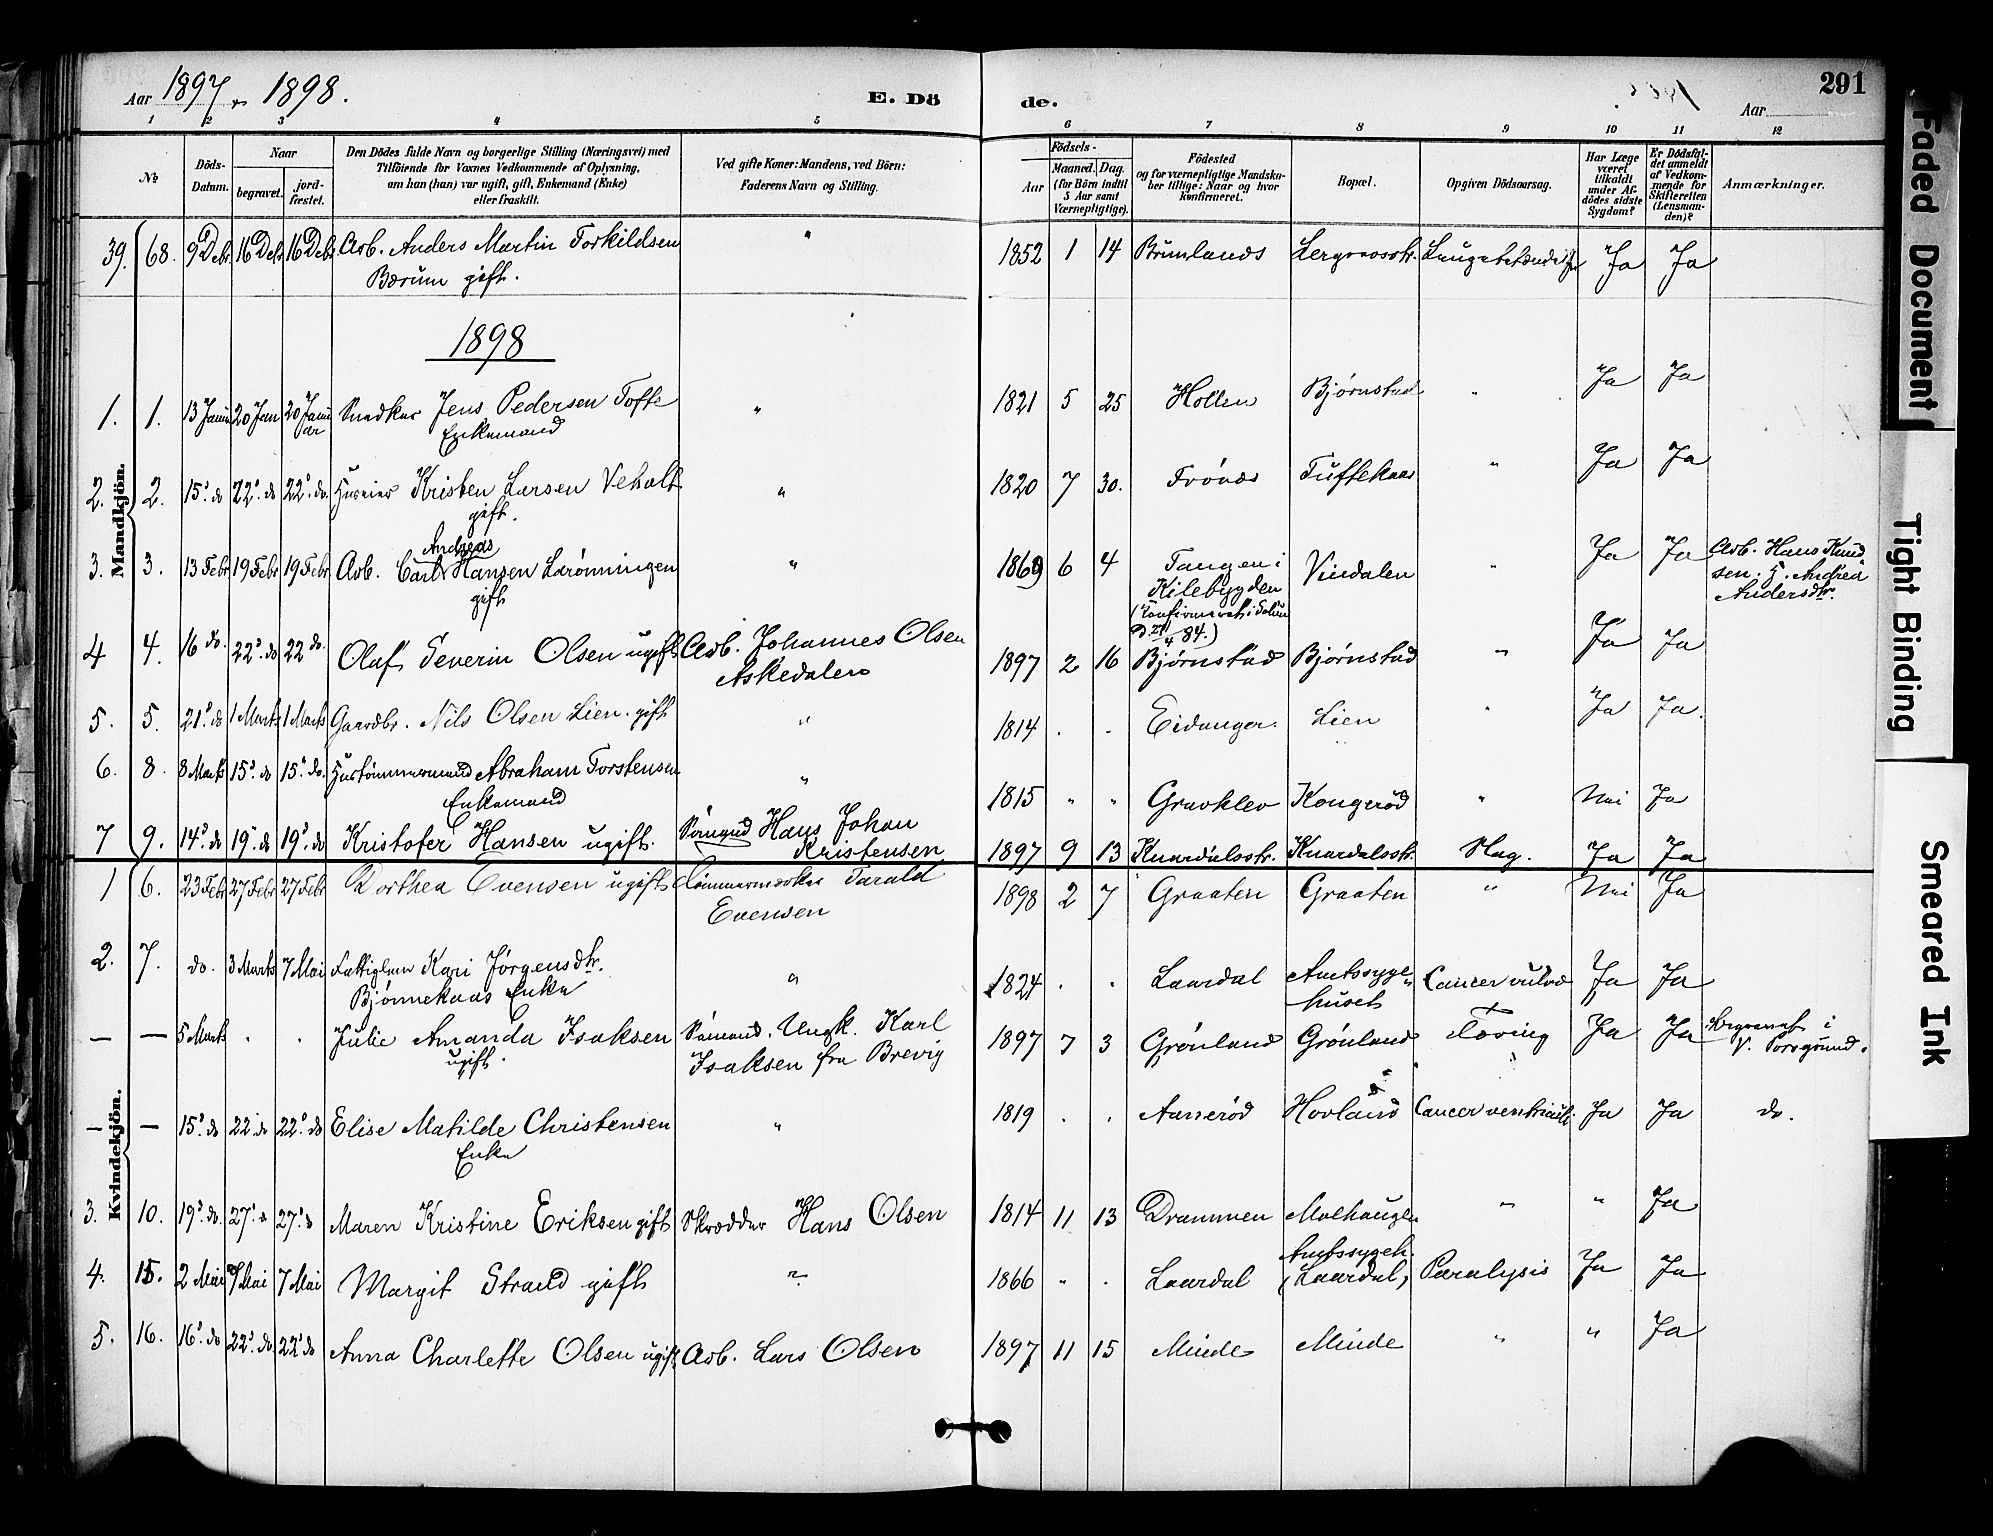 Aar 1897 & 1898.
E. Dö
de.
Aar
291
1 2 3 4 5 6 7 8 9 10 11 12
№
Döds-
Datum.
Naar
begravet.
jord-
fæstet.
Den Dödes fulde Navn og borgerlige Stilling (Næringsvei) med
Tilföiende for Voxnes Vedkommende af Oplysning,
om han (hun) var ugift, gift, Enkemand (Enke)
eller fraskilt.
Ved gifte Koner: Mandens, ved Börn:
Faderens Navn og Stilling.
Födsels-
Aar
Maaned.
Dag.
(for Börn indtil
5 Aar samt
Værnepligtige).
Födested
og for værnepligtige Mandska-
ber tillige: Naar og hvor
konfirmeret.
Bopæl.
Opgiven Dödsaarsag.
Har Læge
været
tilkaldt
under Af-
dödes sidste
Sygdom?
Er Dödsfal-
det anmeldt
af Vedkom-
mende for
Skifteretten
(Lensman-
den)?
Anmærkninger.
39. 68. 9 Debr 16 Debr 16 Debr Arb. Anders Martin Torkildsen " 1852 1 14 Brunlanes Lergravsstr. Ja Ja
Bærum gift.
1898
1. 1. 13 Januar 20 Jan 20 Januar Snedker Jens Pedersen Tofte " 1821 5 25 Hollen Bjørnstad " Ja Ja
Enkemand
Mandkjön.
2. 2. 15. do 22. do 22. do. Huseier Kristen Larsen Veholt " 1820 7 30. Tuftekaas " Ja Ja
gift.
Andreas
3. 3. 13 Febr 19 Febr 19 Febr Arb. Carl Hansen Larønningen " 1869 6 4 Tangen i Vindalen " Ja Ja Arb. Hans Knud
gift Kilebygden sen. H. Andrea
(Konfirmeret i Solum Andersdtr.
D. 27/4 84.)
4 4. 16 do. 22. do 22 do. Olaf Severin Olsen ugift Arb. Johannes Olsen 1897 2 16 Bjørnstad Bjørnstad " Ja Ja
Askedalen
5. 5. 21. do 1 Marts 1 Marts Gaardbr. Nils Olsen Lien. gift " 1814 . . Eidanger. Lien " Ja Ja.
6. 8. 8 Marts 15. do 15. do. Hustømmermand Abraham Torstensen " 1815 " " Gravklev Kongerød " Nei Ja
Enkemand
7 9. 14. do 19. do 19. do Kristofer Hansen ugift. Sømand Hans Johan 1897 9 13 Knardalsstr. Knardalsstr. Slag. Ja Ja
Kristensen
1 6. 23 Febr 27 Febr 27 Febr Dorthea Evensen ugift Tømmermerker Tarald 1898 2 7 Graaten Graaten " Nei Ja
Evensen
2. 7. do. 3 Marts 7 Mai Fattiglem Kari Jørgensdtr. " 1824 . . Laardal Amtssyge- Cancer vulvæ Ja Ja
Bjønnekaas Enke huset
— — 5 Marts . . Julie Amanda Isaksen Sømand. Ungk. Karl 1897 7 3 Grønland Grønland Tæring Ja Ja begravet i
ugift. Isaksen fra Brevig V. Porsgrund.
Kvindekjön.
— — 15. do 22 do 22. do Elise Matilde Christensen " 1819 . . Aanerød Hovland Cancer ventriculi. Ja Ja do.
Enke
3. 10. 19. do. 27. do 27. do Maren Kristine Eriksen gift Skrædder Hans Olsen 1814 11 13 Drammen Mælhaugen " " Ja
4. 15. 2 Mai 7 Mai 7 Mai Margit Strand gift " 1866 " . Laardal Amtssygeh. (Laardal) Paralysis Ja Ja
5. 16. 16. do 22. do 22 do Anna Charlotte Olsen ugift Arb. Lars Olsen 1897 11 15 Minde Minde " " Ja
Faded Document
Tight Binding
Smeared Ink